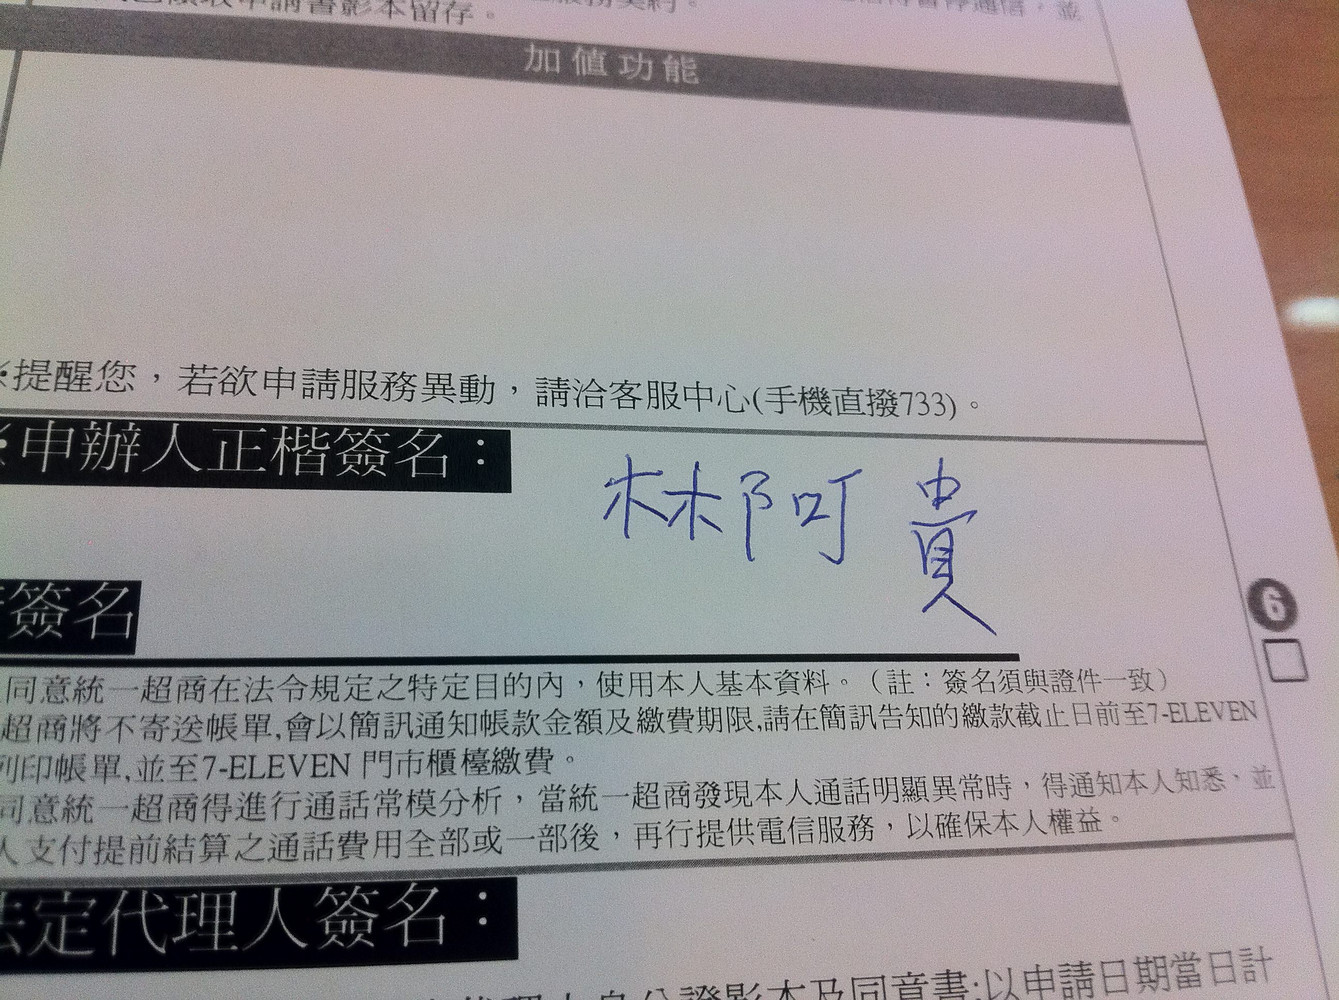 領取申請書影本留存。
加值功能
※提醒您，若欲申請服務異動，請洽客服中心(手機直撥733)。
※申辦人正楷簽名：
林阿貴
簽名
同意統一超商在法令規定之特定目的內，使用本人基本資料。（註：簽名須與證件一致）
6
超商將不寄送帳單,會以簡訊通知帳款金額及繳費期限,請在簡訊告知的繳款截止日前至7-ELEVEN
列印帳單,並至7-ELEVEN 門市櫃檯繳費。
同意統一超商得進行通話常模分析，當統一超商發現本人通話明顯異常時，得通知本人知悉，並
人支付提前結算之通話費用全部或一部後，再行提供電信服務，以確保本人權益。
法定代理人簽名：
影本及同意書;以申請日期當日計